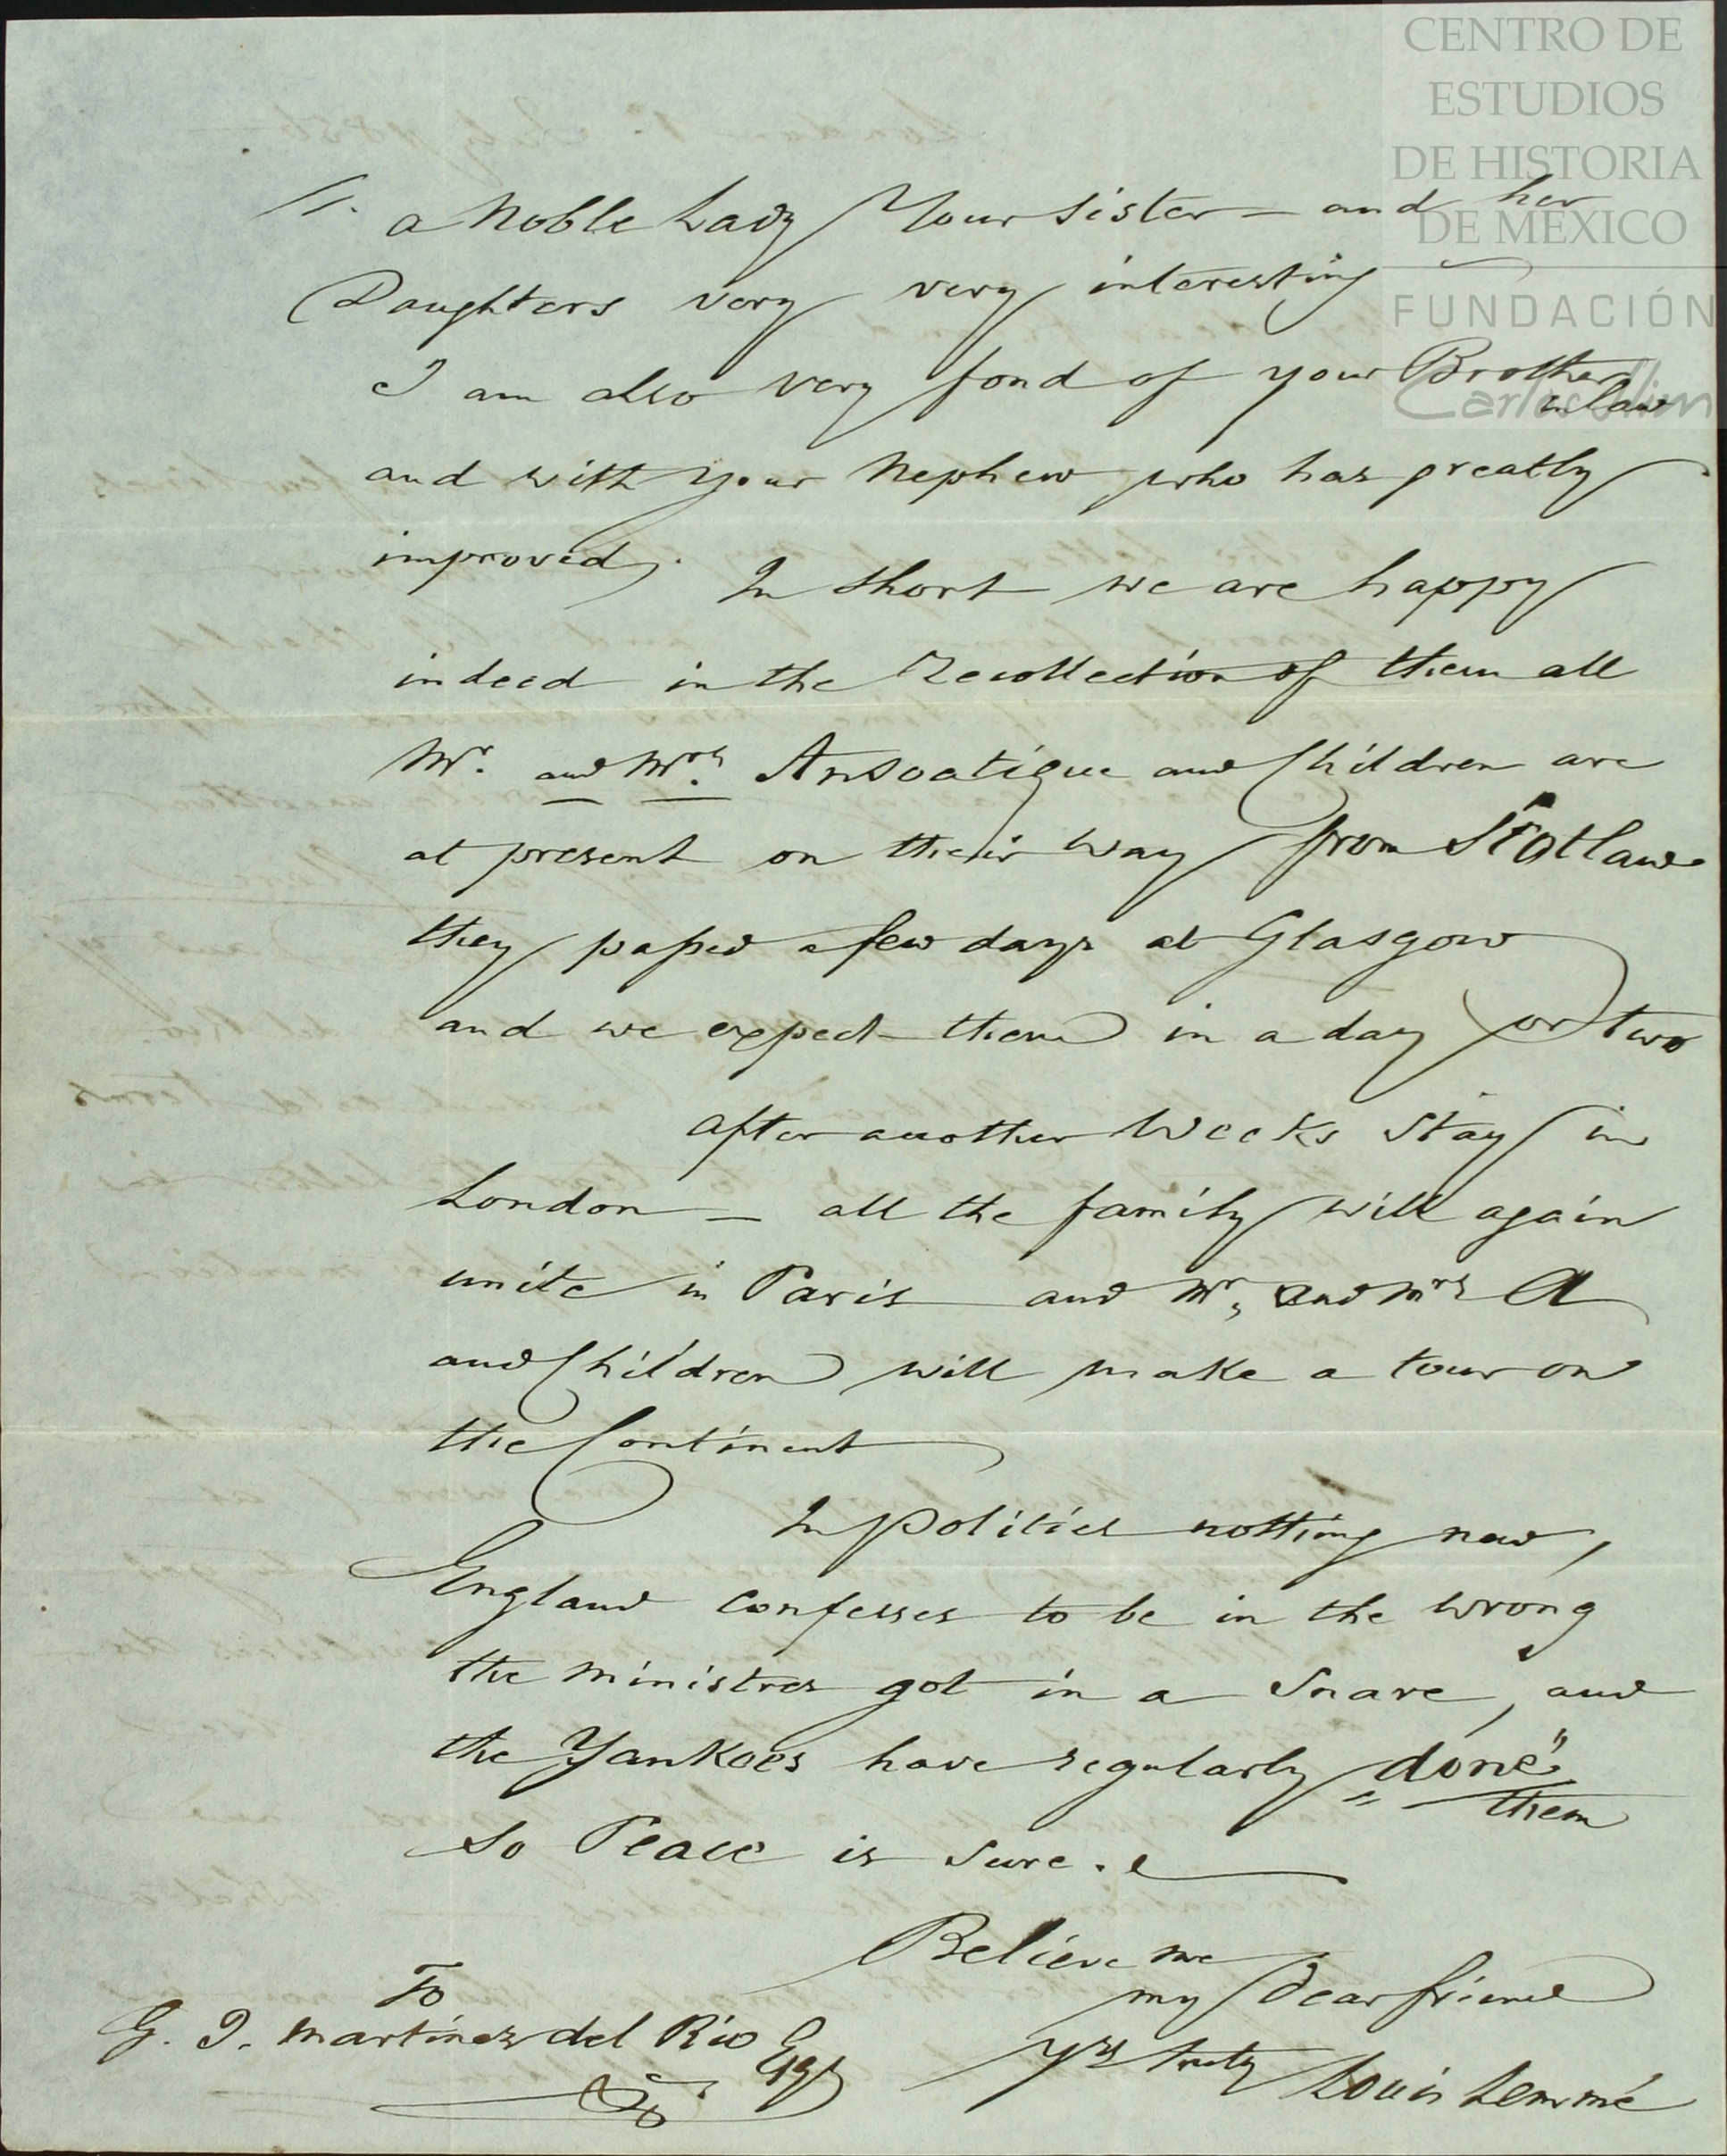 CENTRO DE
ESTUDIOS
DE HISTORIA
DE MÉXICO
FUNDACIÓN
Carlos Slim
a Noble Lady Your Sister – and her
Daughters very very interesting
I am also very fond of your Brother
in law
and with your Nephew who has greatly
improved. In short we are happy
indeed in the Recollection of them all
Mr. and Mrs. Ansoatigue and Children are
at present on their way from Scotland
they passed a few days at Glasgow
and we expect them in a day or two
after another Weeks Stay in
London – all the family will again
unite in Paris and Mr. and Mrs A
and Children will make a tour on
the Continent
In politics nothing new,
England confesses to be in the wrong
the ministres got in a Snare, and
the Yankees have regularly "done"
them
So Peace is Sure.
Believe me
my Dear friend
Yrs truly Louis Lemmé
To
G. J. Martinez del Rio Esqr